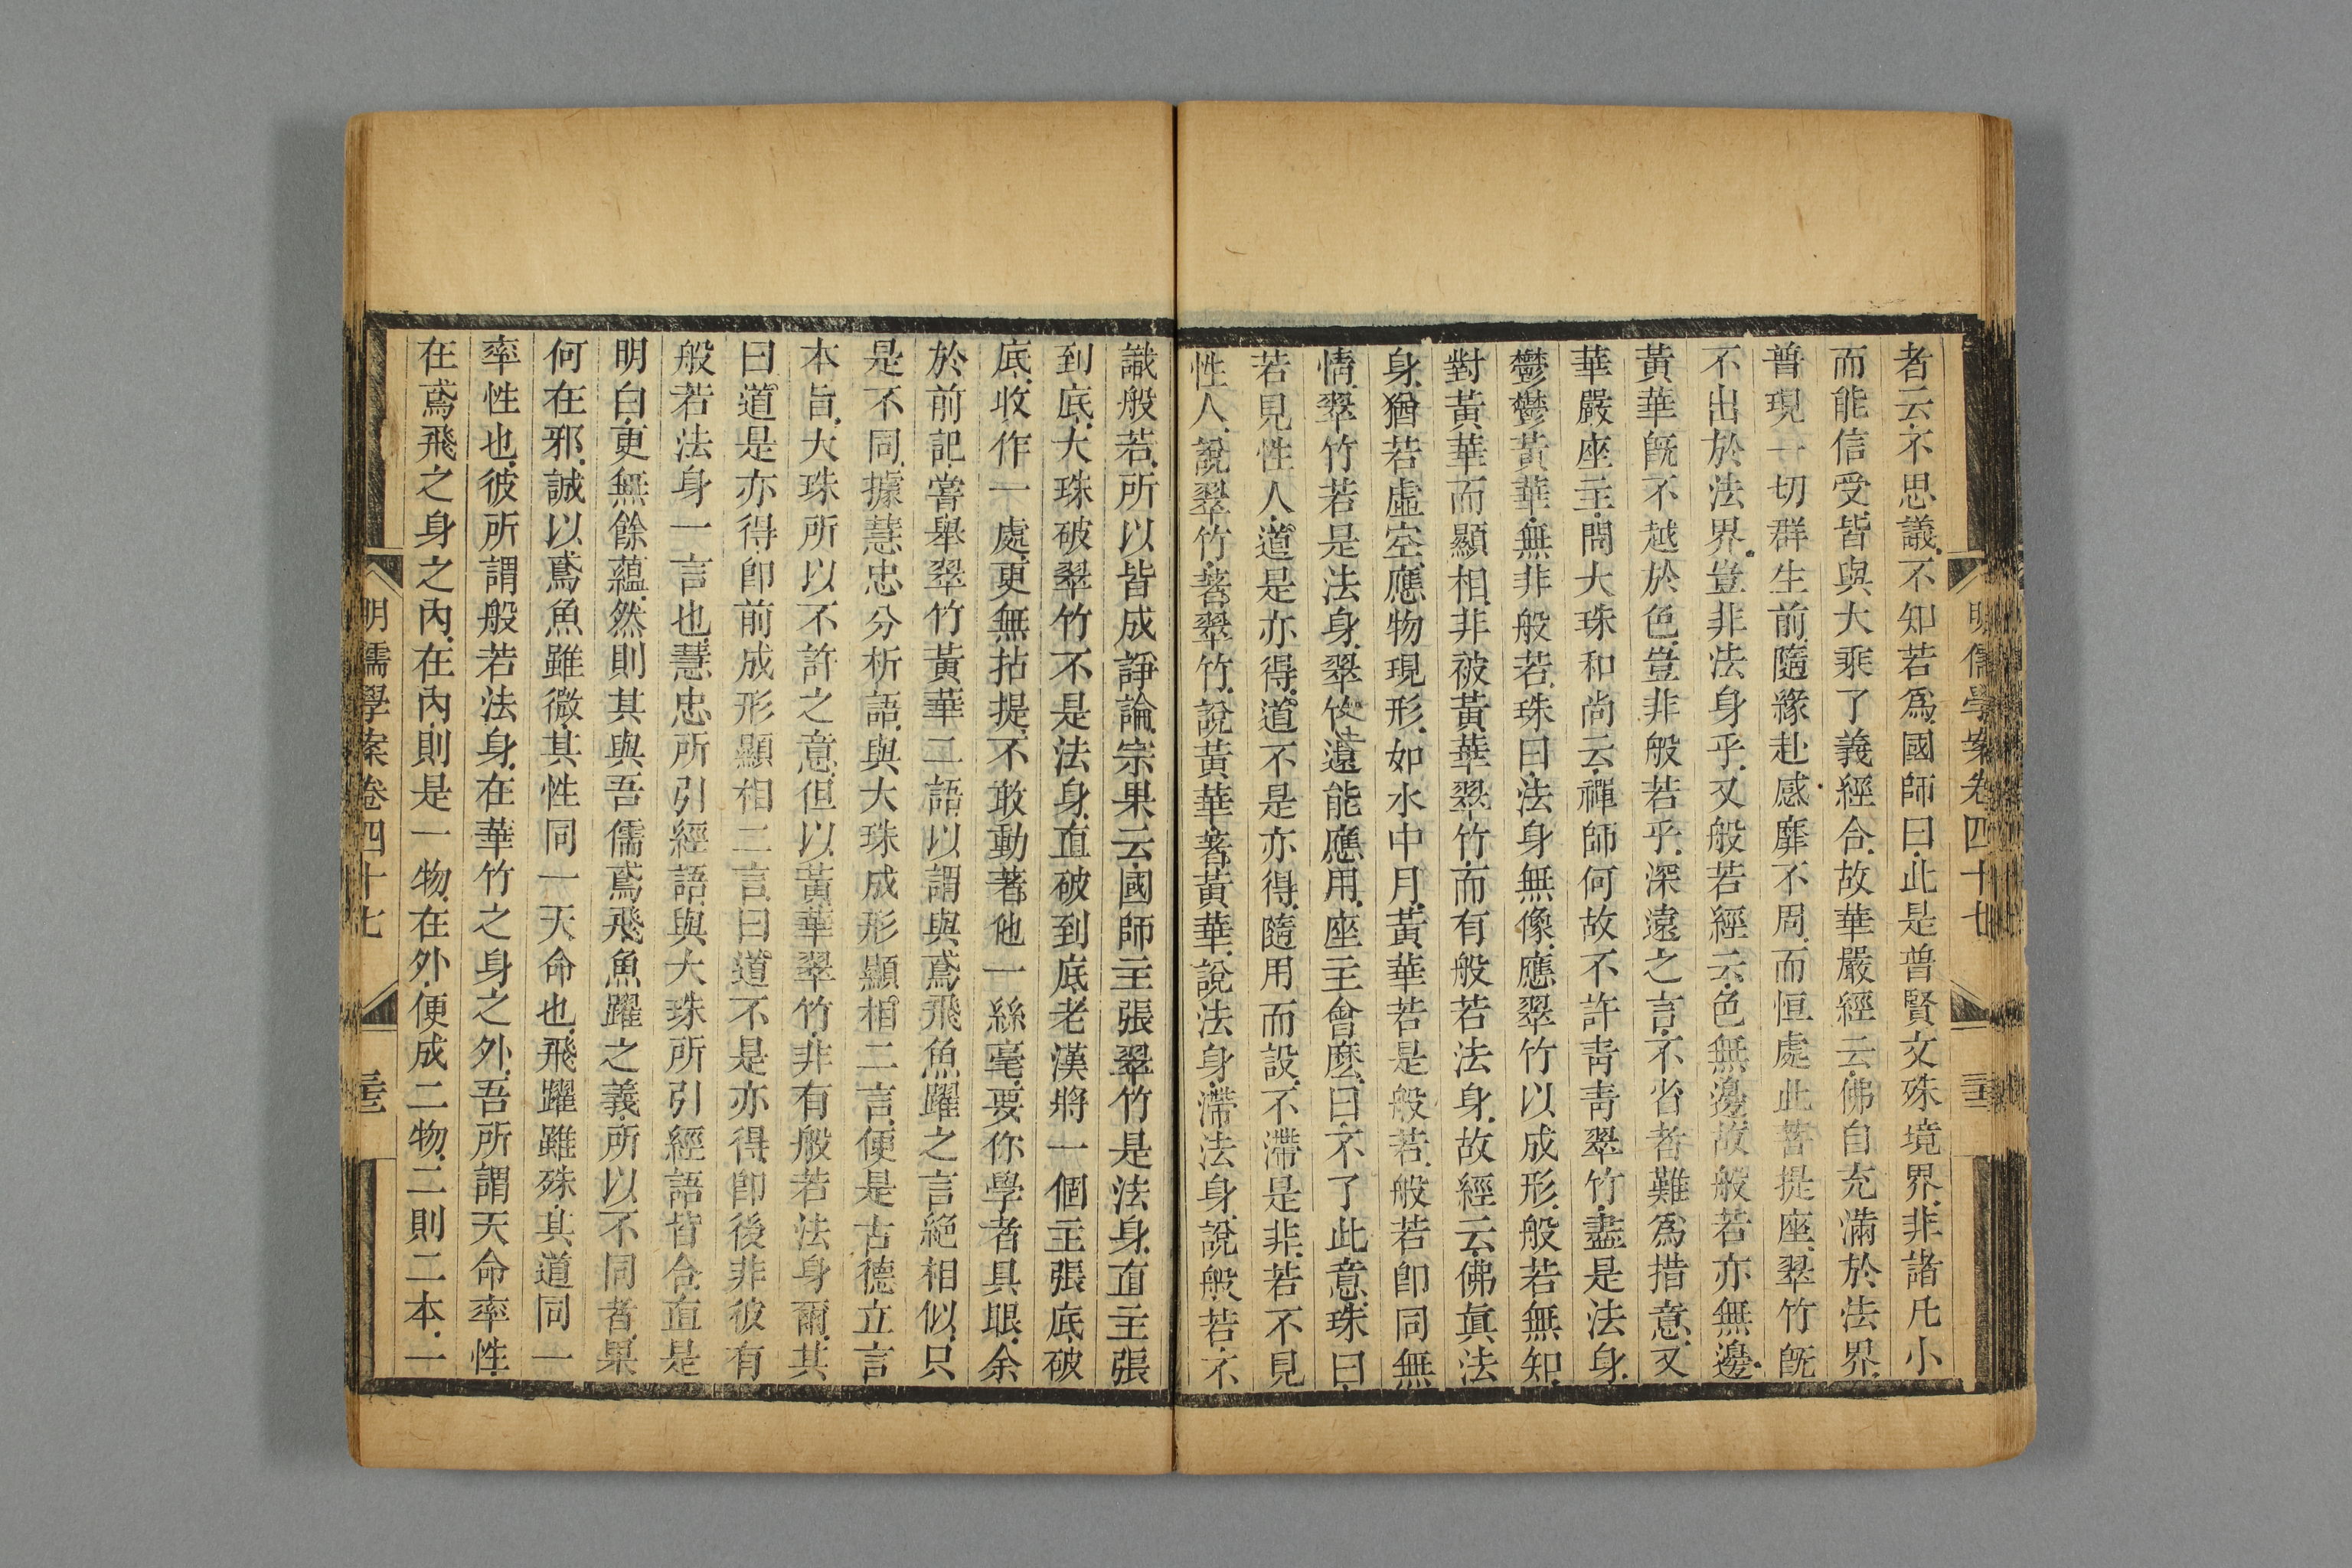 明儒學案卷四十七
三三
者云不思議不知若爲國師曰此是普賢文殊境界非諸凡小
而能信受皆與大乘了義經合故華嚴經云佛自充滿於法界
普現一切群生前隨緣赴感靡不周而恒處此菩提座翠竹旣
不出於法界豈非法身乎又般若經云色無邊故般若亦無邊
黃華旣不越於色豈非般若乎深遠之言不省者難爲措意又
華嚴座主問大珠和尚云禪師何故不許青青翠竹盡是法身
鬱鬱黃華無非般若珠曰法身無像應翠竹以成形般若無知
對黃華而顯相非被黃華翠竹而有般若法身故經云佛眞法
身猶若虛空應物現形如水中月黃華若是般若般若卽同無
情翠竹若是法身翠竹還能應用座主會麼曰不了此意珠曰
若見性人道是亦得道不是亦得隨用而說不滯是非若不見
性人說翠竹著翠竹說黃華著黃華說法身滯法身說般若不
識般若所以皆成諍論宗果云國師主張翠竹是法身直主張
到底大珠破翠竹不是法身直破到底老漢將一個主張底破
底收作一處更無拈提不敢動著他一絲毫要你學者具眼余
於前記嘗舉翠竹黃華二語以謂與鳶飛魚躍之言絕相似只
是不同據慧忠分析語與大珠成形顯相二言便是古德立言
本旨大珠所以不許之意但以黃華翠竹非有般若法身爾其
曰道是亦得卽前成形顯相二言曰道不是亦得卽後非彼有
般若法身一言也慧忠所引經語與大珠所引經語皆合直是
明白更無餘蘊然則其與吾儒鳶飛魚躍之義所以不同者果
何在邪誠以鳶魚雖微其性同一天命也飛躍雖殊其道同一
率性也彼所謂般若法身在華竹之身之外吾所謂天命率性
在鳶飛之身之內在內則是一物在外便成二物二則二本一
明儒學案卷四十七
三三